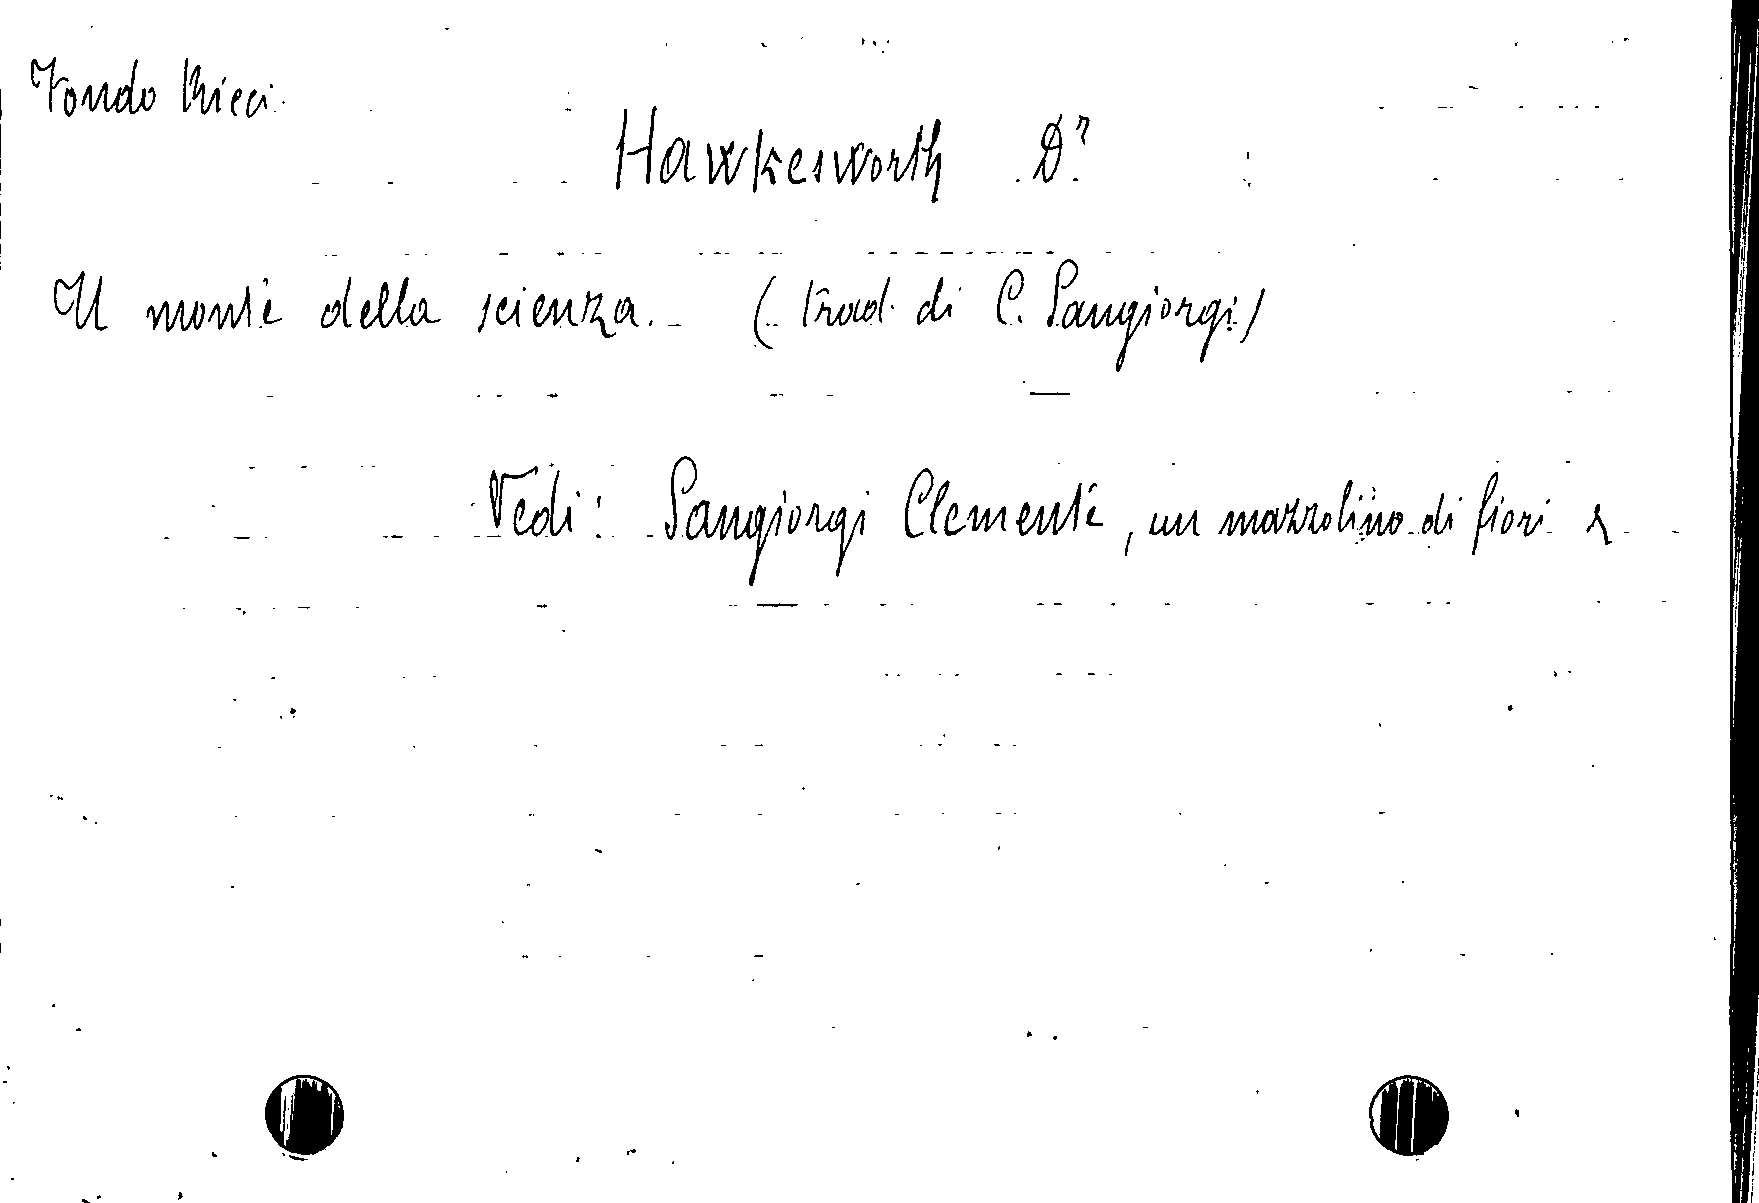 Fondo Ricci
Hawkesworth Dr
Il monte della scienza. (trad. di C. Sangiorgi)
Vedi: Sangiorgi Clemente, un mazzolino di fiori